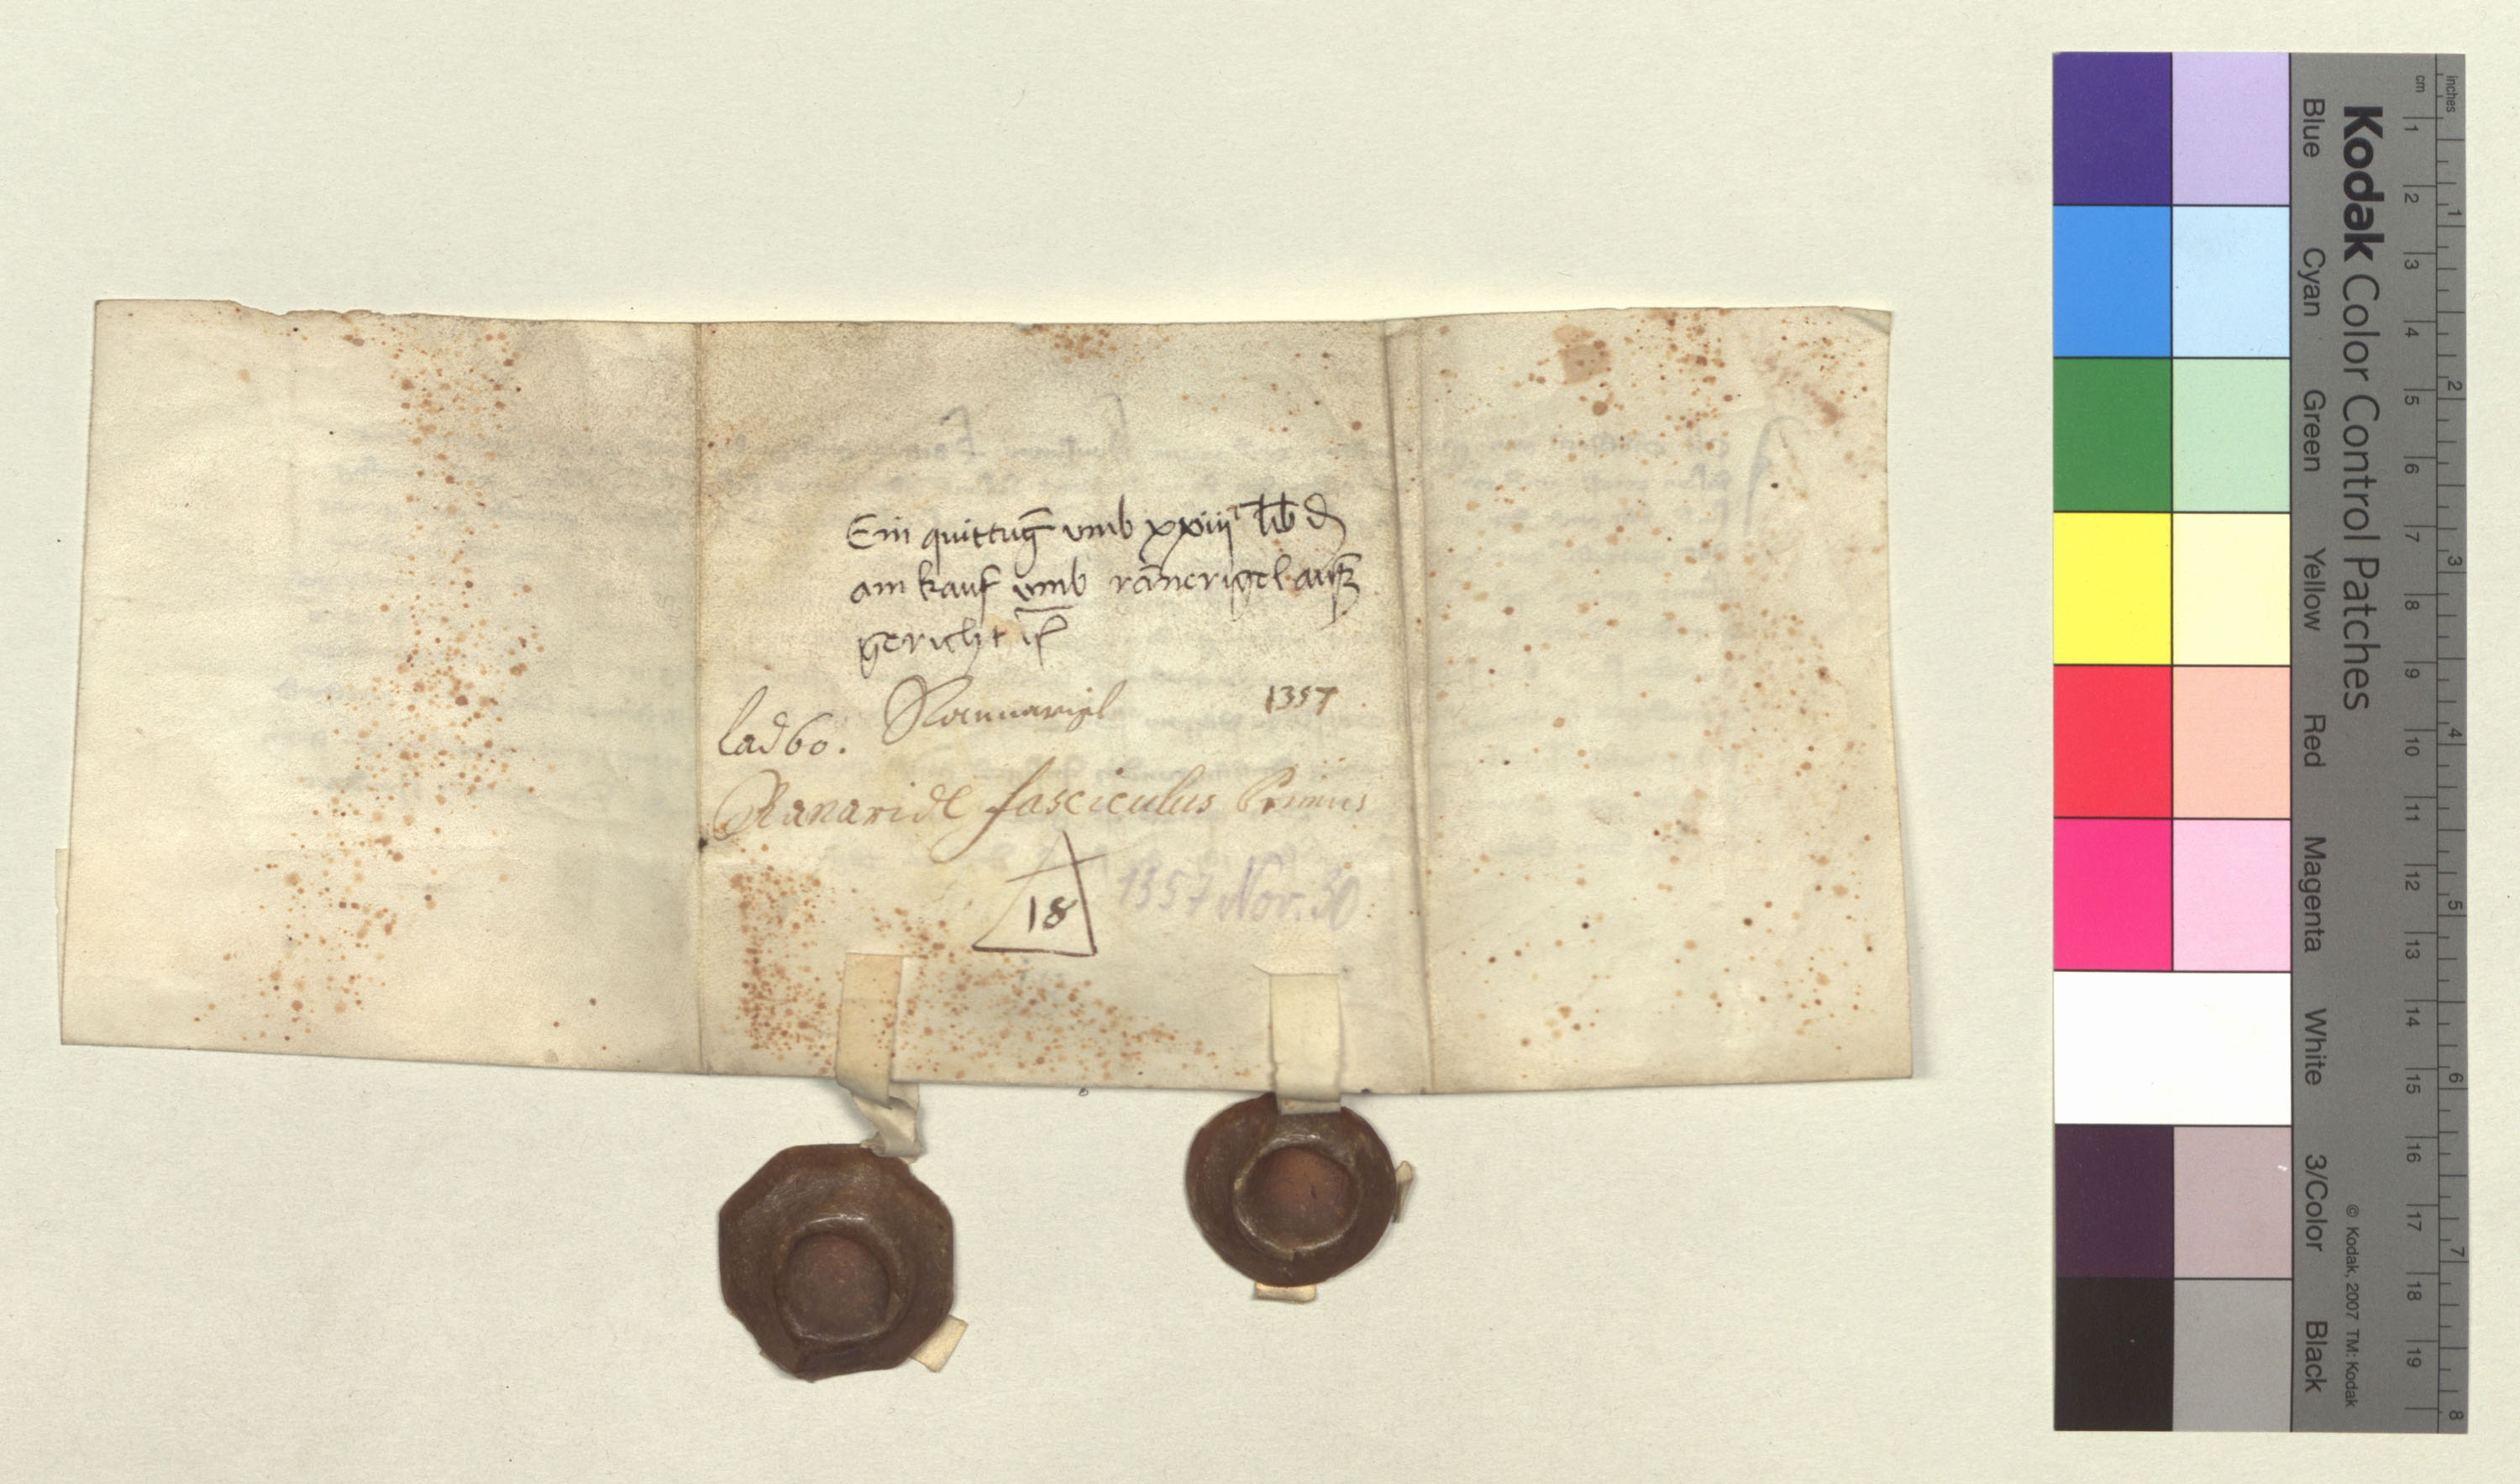 Ein quittūg umb xxiiij lib d
am kauf umb rānerigel auß
gericht
Rannarigl 1357
lad 60.
Ranaridl fasciculus Primus
18
1357 Nov. 30
Kodak Color Control Patches
Blue Cyan Green Yellow Red Magenta White 3/Color Black
© Kodak, 2007 TM: Kodak
cm 1 2 3 4 5 6 7 8 9 10 11 12 13 14 15 16 17 18 19
inches 1 2 3 4 5 6 7 8